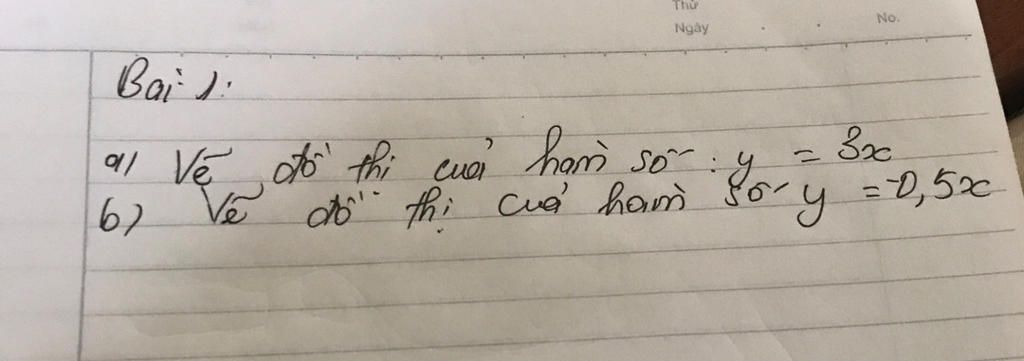 Thứ
Ngày No.
Bài 1:
a) Vẽ đồ thị của hàm số: y = 3x
b) Vẽ đồ thị của hàm số y = -0,5x